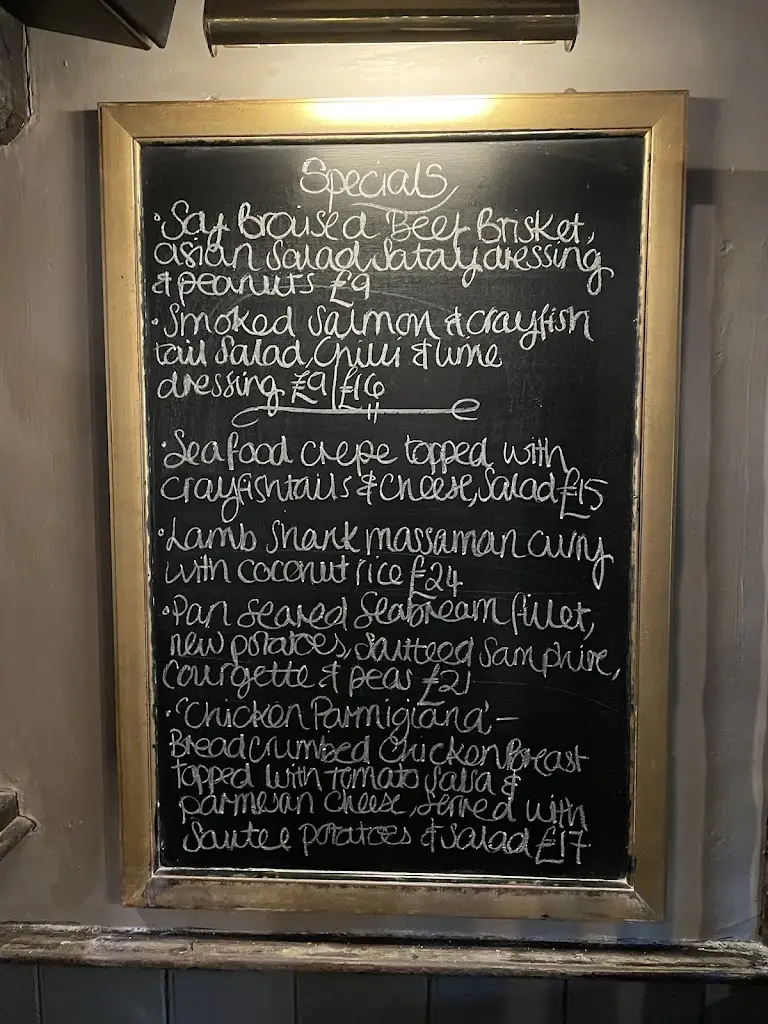 Specials
• Soy Braised Beef Brisket,
asian salad, satay dressing
& peanuts £9
• Smoked Salmon & crayfish
tail salad, Chilli & lime
dressing £9|£16
• Seafood crepe topped with
crayfishtails & cheese, salad £15
• Lamb shank massaman curry
with coconut rice £24
• Pan Seared Seabream fillet,
new potatoes, sauteed samphire,
courgette & peas £21
• 'Chicken Parmigiana' -
Breadcrumbed Chicken Breast
topped with tomato salsa &
parmesan cheese, served with
Sautee potatoes & salad £17